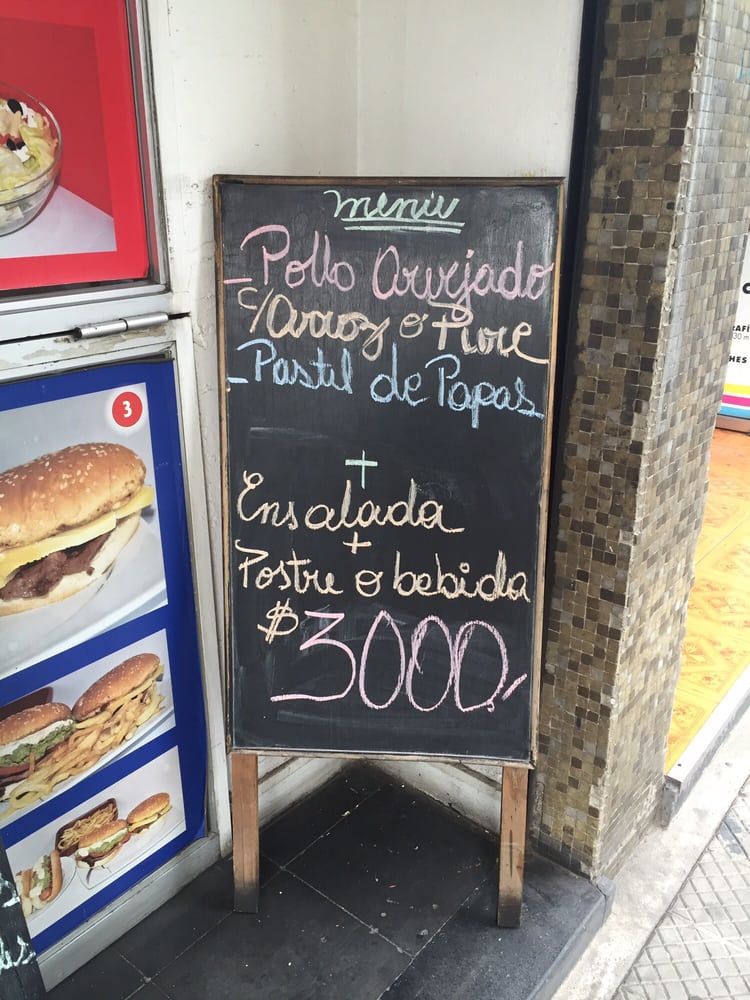 menú
- Pollo Arvejado
c/Arroz o Pure
- Pastel de Papas
+
Ensalada
+
Postre o bebida
$3000,-
3